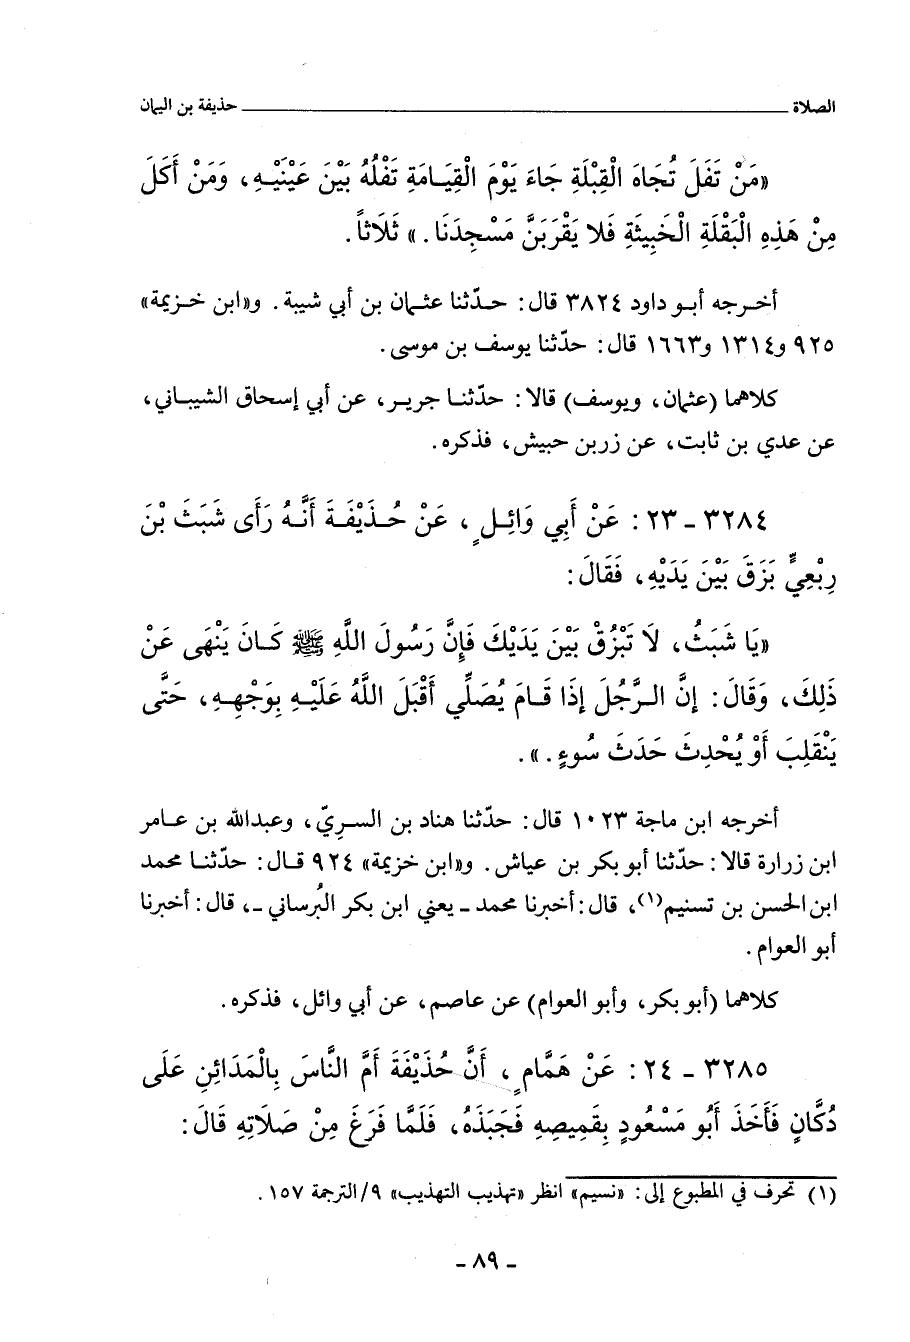 الصلاة ــــــــــ حذيفة بن اليمان
«مَنْ تَفَلَ تُجَاهَ الْقِبْلَةِ جَاءَ يَوْمَ الْقِيَامَةِ تَفْلُهُ بَيْنَ عَيْنَيْهِ، وَمَنْ أَكَلَ
مِنْ هَذِهِ الْبَقْلَةِ الْخَبِيثَةِ فَلا يَقْرَبَنَّ مَسْجِدَنَا.» ثَلَاثاً.
أخرجه أبو داود ٣٨٢٤ قال: حدّثنا عثمان بن أبي شيبة. و«ابن خزيمة»
٩٢٥ و١٣١٤ و١٦٦٣ قال: حدّثنا يوسف بن موسى.
كلاهما (عثمان، ويوسف) قالا: حدّثنا جرير، عن أبي إسحاق الشيباني،
عن عدي بن ثابت، عن زربن حبيش، فذكره.
٣٢٨٤ - ٢٣: عَنْ أَبِي وَائِلٍ، عَنْ حُذَيْفَةَ أَنَّهُ رَأَى شَبَثَ بْنَ
رِبْعِيٍّ بَزَقَ بَيْنَ يَدَيْهِ، فَقَالَ:
«يَا شَبَثُ، لَا تَبْزُقْ بَيْنَ يَدَيْكَ فَإِنَّ رَسُولَ اللَّهِ ﷺ كَانَ يَنْهَى عَنْ
ذَلِكَ، وَقَالَ: إِنَّ الرَّجُلَ إِذَا قَامَ يُصَلِّي أَقْبَلَ اللَّهُ عَلَيْهِ بِوَجْهِهِ، حَتَّى
يَنْقَلِبَ أَوْ يُحْدِثَ حَدَثَ سُوءٍ.».
أخرجه ابن ماجة ١٠٢٣ قال: حدّثنا هناد بن السريّ، وعبدالله بن عامر
ابن زرارة قالا: حدّثنا أبو بكر بن عياش. و«ابن خزيمة» ٩٢٤ قال: حدّثنا محمد
ابن الحسن بن تسنيم(١)، قال: أخبرنا محمد - يعني ابن بكر البُرساني -، قال: أخبرنا
أبو العوام.
كلاهما (أبو بكر، وأبو العوام) عن عاصم، عن أبي وائل، فذكره.
٣٢٨٥ - ٢٤: عَنْ هَمَّامٍ، أَنَّ حُذَيْفَةَ أَمَّ النَّاسَ بِالْمَدَائِنِ عَلَى
دُكَّانٍ فَأَخَذَ أَبُو مَسْعُودٍ بِقَمِيصِهِ فَجَبَذَهُ، فَلَمَّا فَرَغَ مِنْ صَلَاتِهِ قَالَ:
(١) تحرف في المطبوع إلى: «نسيم» انظر «تهذيب التهذيب» ٩/الترجمة ١٥٧.
- ٨٩ -